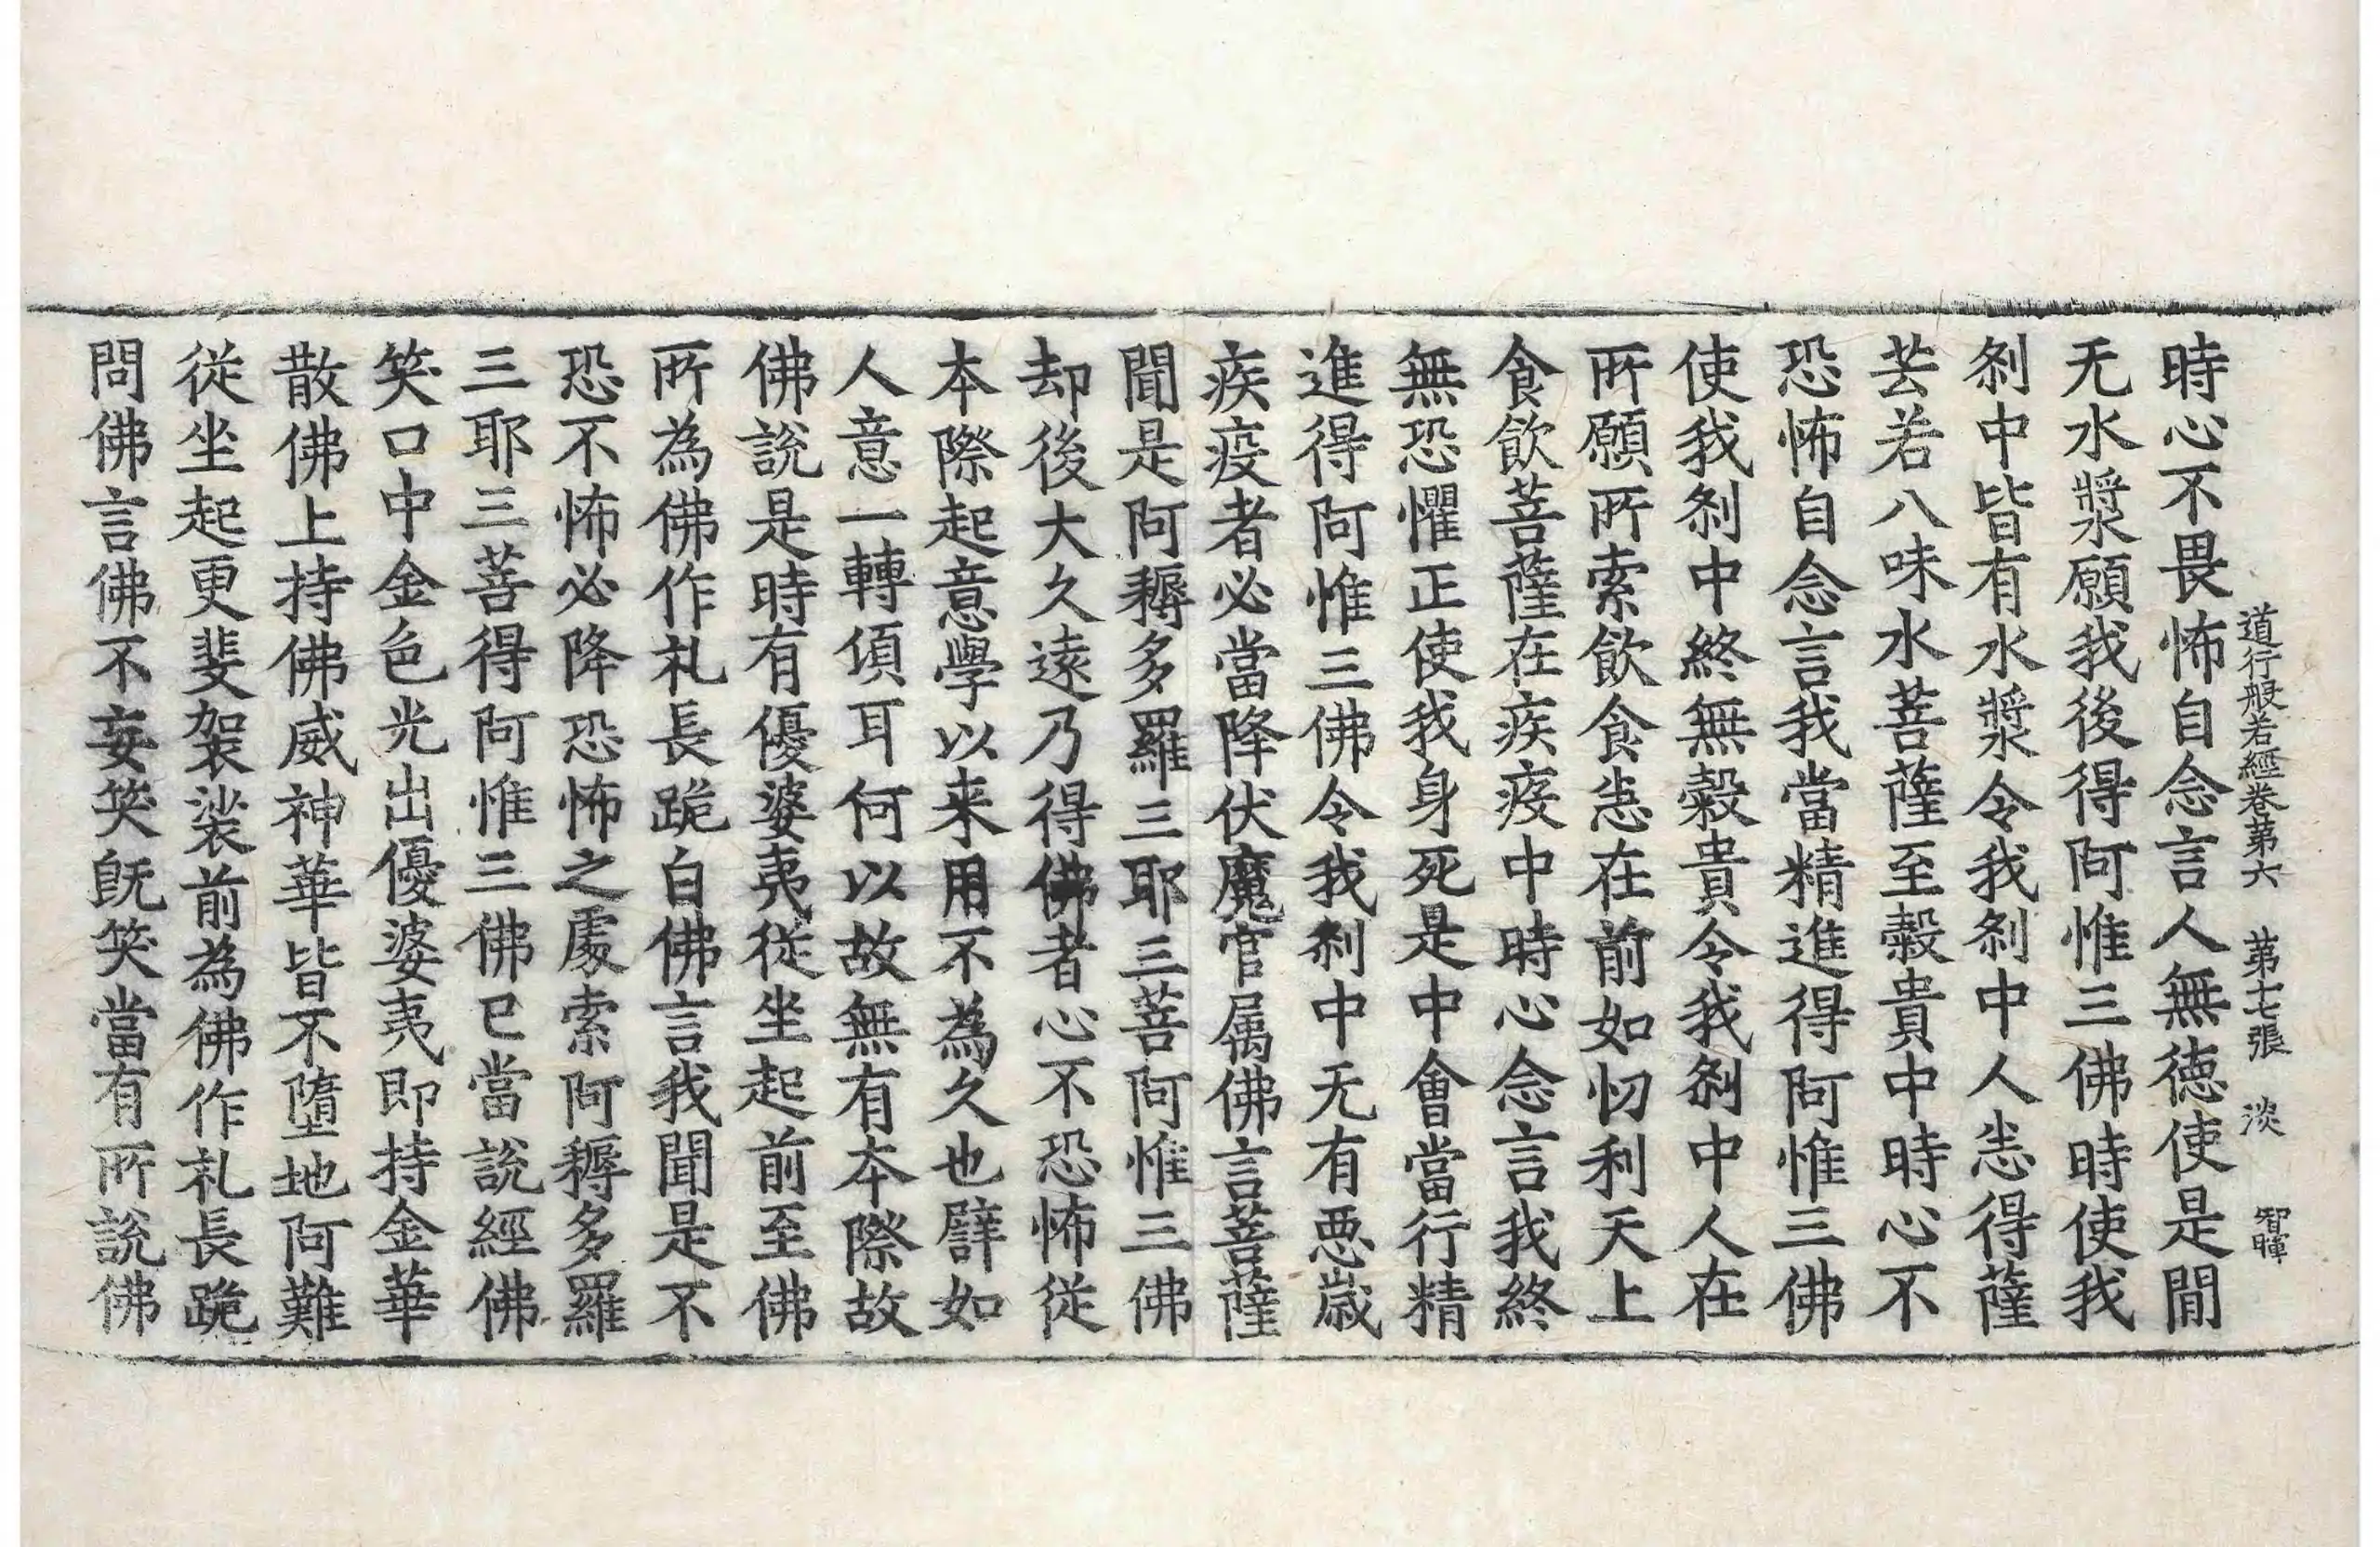 道行般若經卷第六 第十七張 淡 智暉
時心不畏怖自念言人無德使是閒
无水漿願我後得阿惟三佛時使我
刹中皆有水漿令我刹中人悉得薩
芸若八味水菩薩至穀貴中時心不
恐怖自念言我當精進得阿惟三佛
使我刹中終無穀貴令我刹中人在
所願所索飲食悉在前如忉利天上
食飲菩薩在疾疫中時心念言我終
無恐懼正使我身死是中會當行精
進得阿惟三佛令我刹中无有惡歲
疾疫者必當降伏魔官属佛言菩薩
聞是阿耨多羅三耶三菩阿惟三佛
却後大久遠乃得佛者心不恐怖從
本際起意學以来用不為久也譬如
人意一轉傾耳何以故無有本際故
佛說是時有優婆夷從坐起前至佛
所為佛作礼長跪白佛言我聞是不
恐不怖必降恐怖之處索阿耨多羅
三耶三菩得阿惟三佛已當說經佛
笑口中金色光出優婆夷即持金華
散佛上持佛威神華皆不墮地阿難
從坐起更斐袈裟前為佛作礼長跪
問佛言佛不妄笑旣笑當有所說佛